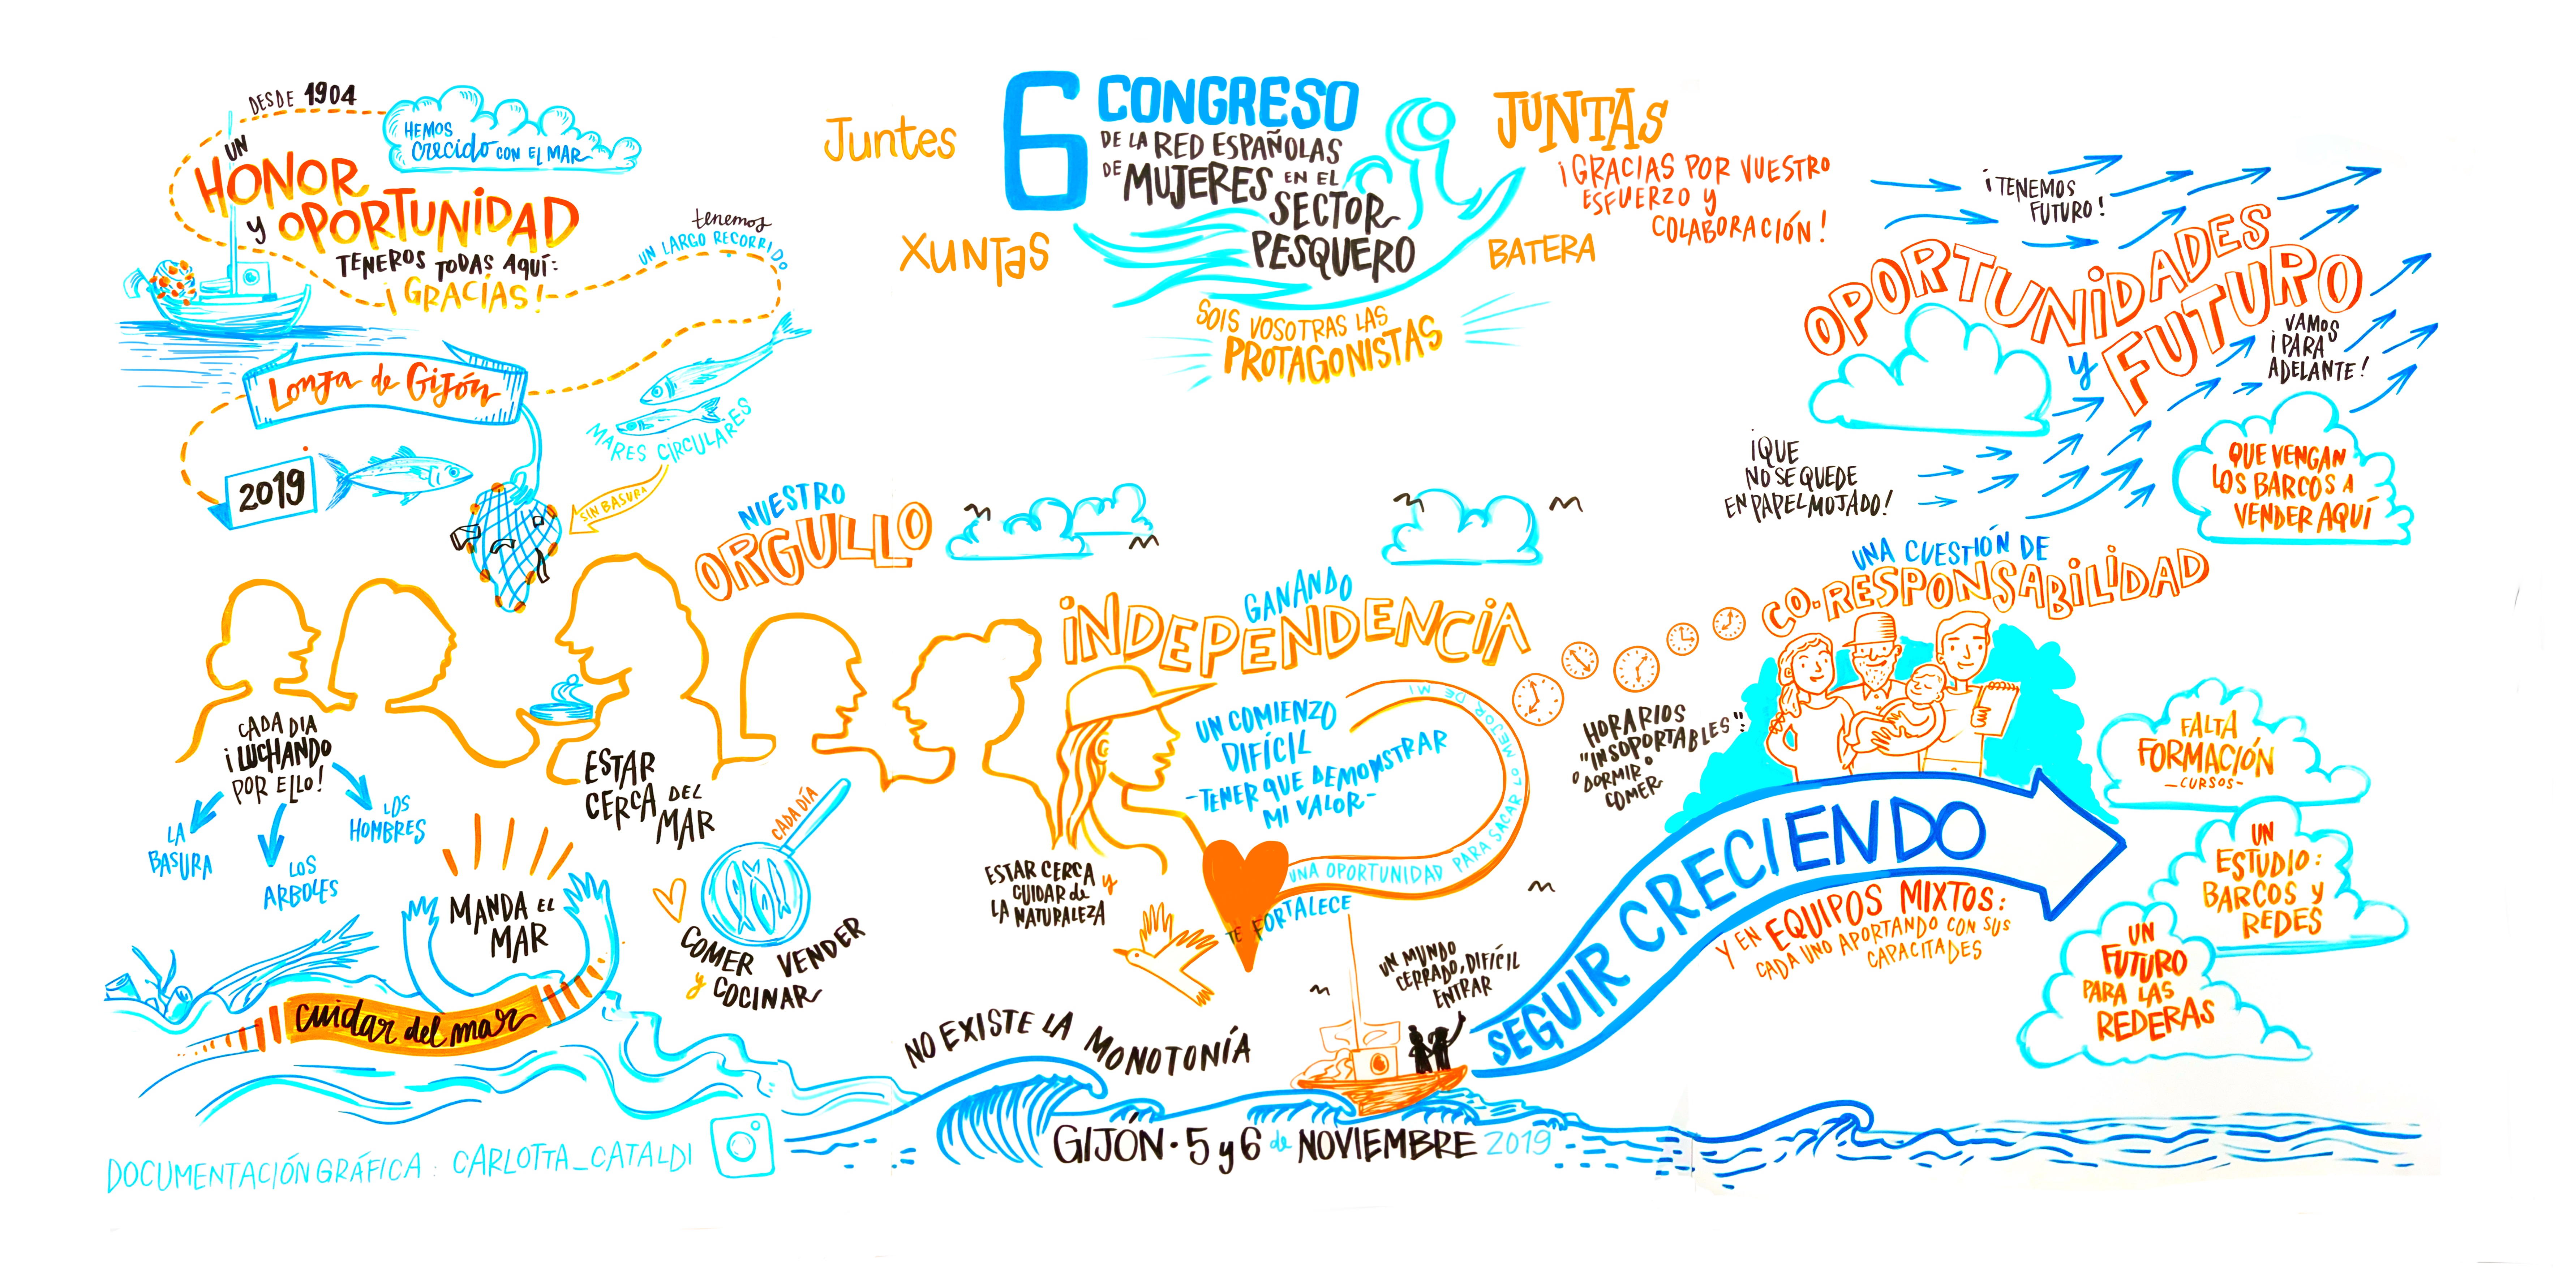 DESDE 1904
HEMOS
crecido CON EL MAR
UN
HONOR
y OPORTUNIDAD
TENEROS TODAS AQUÍ:
¡GRACIAS!
tenemos
UN LARGO RECORRIDO
Lonja de Gijón
2019
MARES CIRCULARES
SIN BASURA
Juntes
XUNTAS
6 CONGRESO
DE LA RED ESPAÑOLAS
DE MUJERES EN EL
SECTOR
PESQUERO
JUNTAS
BATERA
¡GRACIAS POR VUESTRO
ESFUERZO Y
COLABORACIÓN!
SOIS VOSOTRAS LAS
PROTAGONISTAS
¡TENEMOS
FUTURO!
OPORTUNIDADES
y FUTURO
VAMOS
¡PARA
ADELANTE!
¡QUE
NO SE QUEDE
EN PAPEL MOJADO!
QUE VENGAN
LOS BARCOS A
VENDER AQUÍ
NUESTRO
ORGULLO
CADA DIA
¡LUCHANDO
POR ELLO!
LA
BASURA
LOS
ARBOLES
LOS
HOMBRES
MANDA EL
MAR
cuidar del mar
ESTAR
CERCA DEL
MAR
CADA DÍA
COMER VENDER
y COCINAR
GANANDO
INDEPENDENCIA
UN COMIENZO
DIFÍCIL
-TENER QUE DEMONSTRAR
MI VALOR-
UNA OPORTUNIDAD PARA SACAR LO MEJOR DE MI
TE FORTALECE
ESTAR CERCA y
CUIDAR de
LA NATURALEZA
NO EXISTE LA MONOTONÍA
UN MUNDO
CERRADO, DIFÍCIL
ENTRAR
UNA CUESTIÓN DE
CO-RESPONSABILIDAD
HORARIOS
"INSOPORTABLES":
° DORMIR °
COMER
SEGUIR CRECIENDO
Y EN EQUIPOS MIXTOS:
CADA UNO APORTANDO CON SUS
CAPACITADES
FALTA
FORMACIÓN
-CURSOS-
UN
ESTUDIO:
BARCOS y
REDES
UN
FUTURO
PARA LAS
REDERAS
GIJÓN · 5 y 6 de NOVIEMBRE 2019
DOCUMENTACIÓN GRÁFICA: CARLOTTA_CATALDI